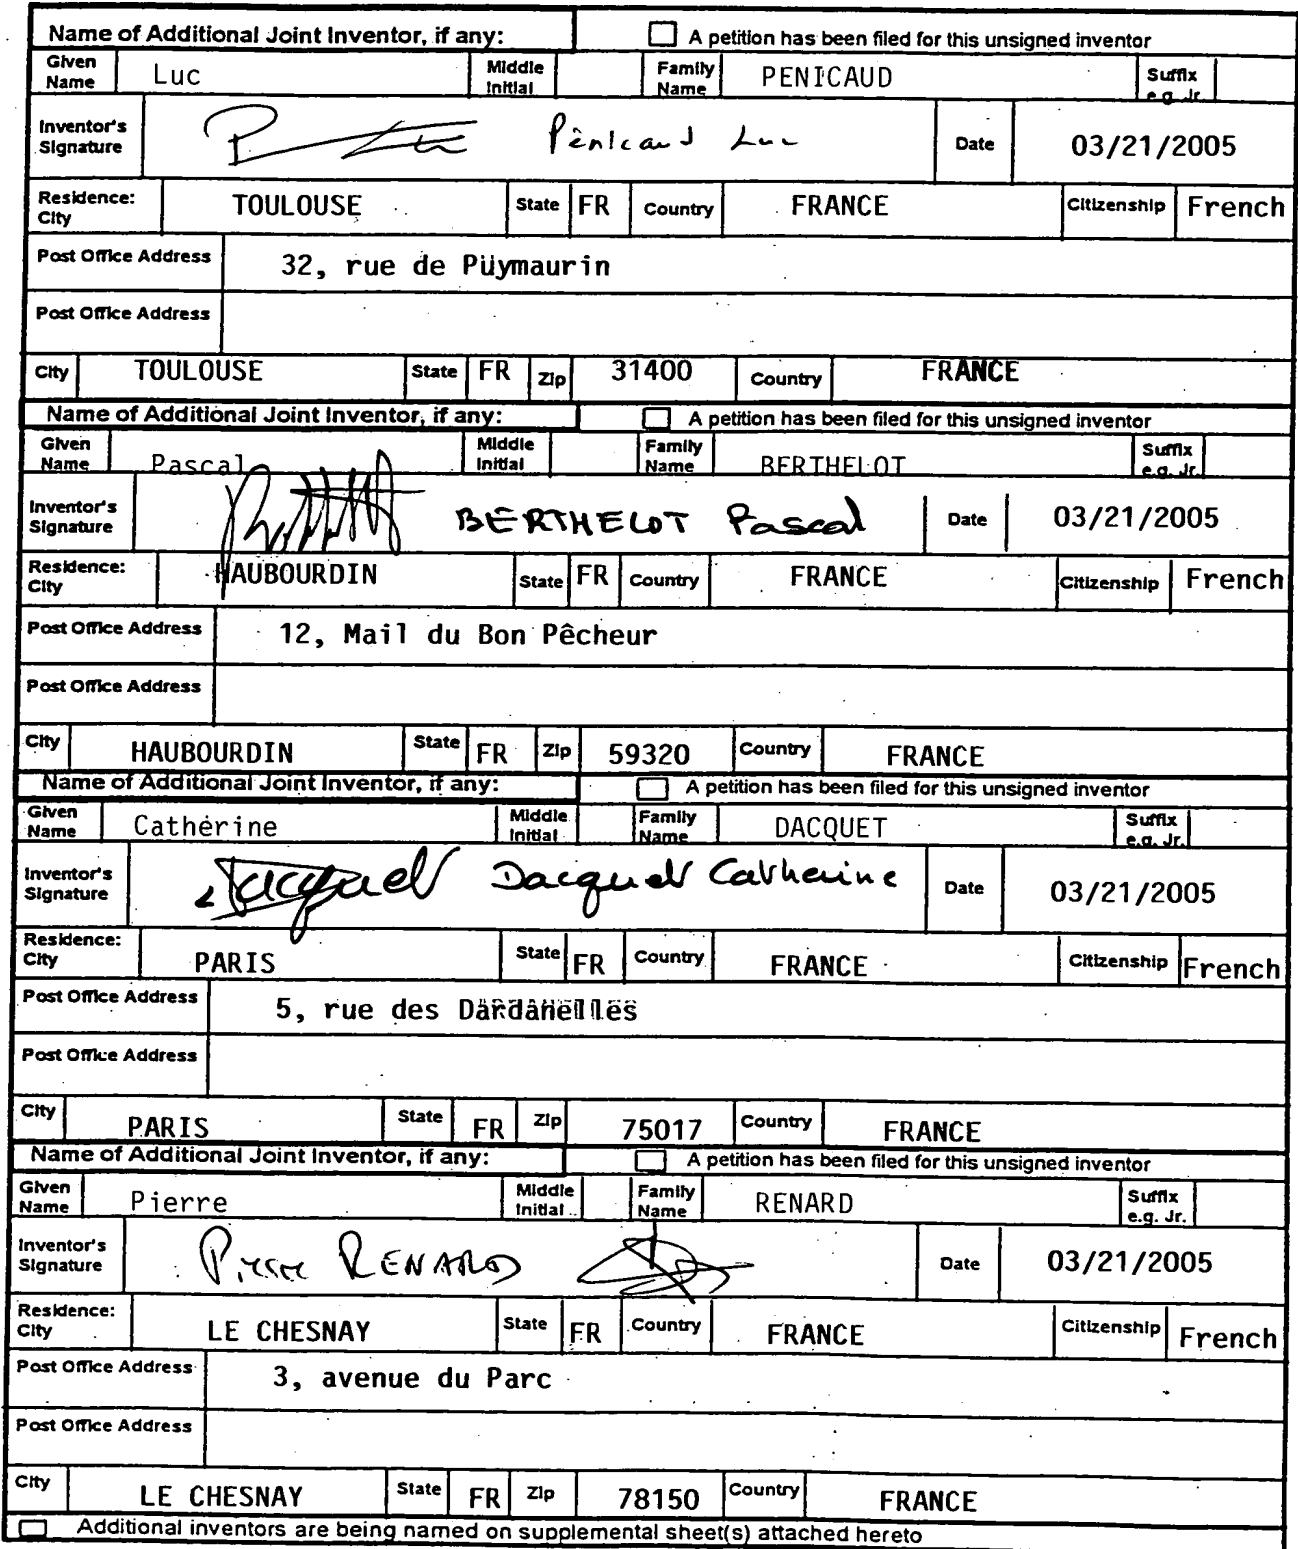 Name of Additional Joint Inventor, if any: A petition has been filed for this unsigned inventor
Given Name Luc Middle Initial Family Name PENICAUD Suffix e.g. Jr.
Inventor's Signature Pênicaud Luc Date 03/21/2005
Residence: City TOULOUSE State FR Country FRANCE Citizenship French
Post Office Address 32, rue de Puymaurin
Post Office Address
City TOULOUSE State FR Zip 31400 Country FRANCE
Name of Additional Joint Inventor, if any: A petition has been filed for this unsigned inventor
Given Name Pascal Middle Initial Family Name BERTHELOT Suffix e.g. Jr.
Inventor's Signature BERTHELOT Pascal Date 03/21/2005
Residence: City HAUBOURDIN State FR Country FRANCE Citizenship French
Post Office Address 12, Mail du Bon Pêcheur
Post Office Address
City HAUBOURDIN State FR Zip 59320 Country FRANCE
Name of Additional Joint Inventor, if any: A petition has been filed for this unsigned inventor
Given Name Catherine Middle Initial Family Name DACQUET Suffix e.g. Jr.
Inventor's Signature Dacquet Dacquet Catherine Date 03/21/2005
Residence: City PARIS State FR Country FRANCE Citizenship French
Post Office Address 5, rue des Dardanelles
Post Office Address
City PARIS State FR Zip 75017 Country FRANCE
Name of Additional Joint Inventor, if any: A petition has been filed for this unsigned inventor
Given Name Pierre Middle Initial Family Name RENARD Suffix e.g. Jr.
Inventor's Signature Pierre RENARD Date 03/21/2005
Residence: City LE CHESNAY State FR Country FRANCE Citizenship French
Post Office Address 3, avenue du Parc
Post Office Address
City LE CHESNAY State FR Zip 78150 Country FRANCE
Additional inventors are being named on supplemental sheet(s) attached hereto